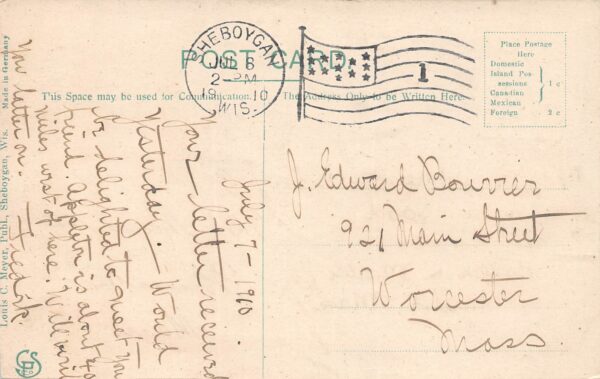 POST CARD
This Space may be used for Communication.
The Address Only to be Written Here
SHEBOYGAN
JUL 6
2-PM
1910
WIS.
1
Place Postage
Here
Domestic
Island Pos
sessions
Canadian
Mexican
1 c
Foreign 2 c
Louis C. Meyer, Publ., Sheboygan, Wis. Made in Germany
July 7-1910
Your letter received
yesterday. Would
be delighted to meet your
friend. Appleton is about 40
miles west of here. Will visit
you later on.
J. Edward Bourrier
921 Main Street
Worcester
Mass.